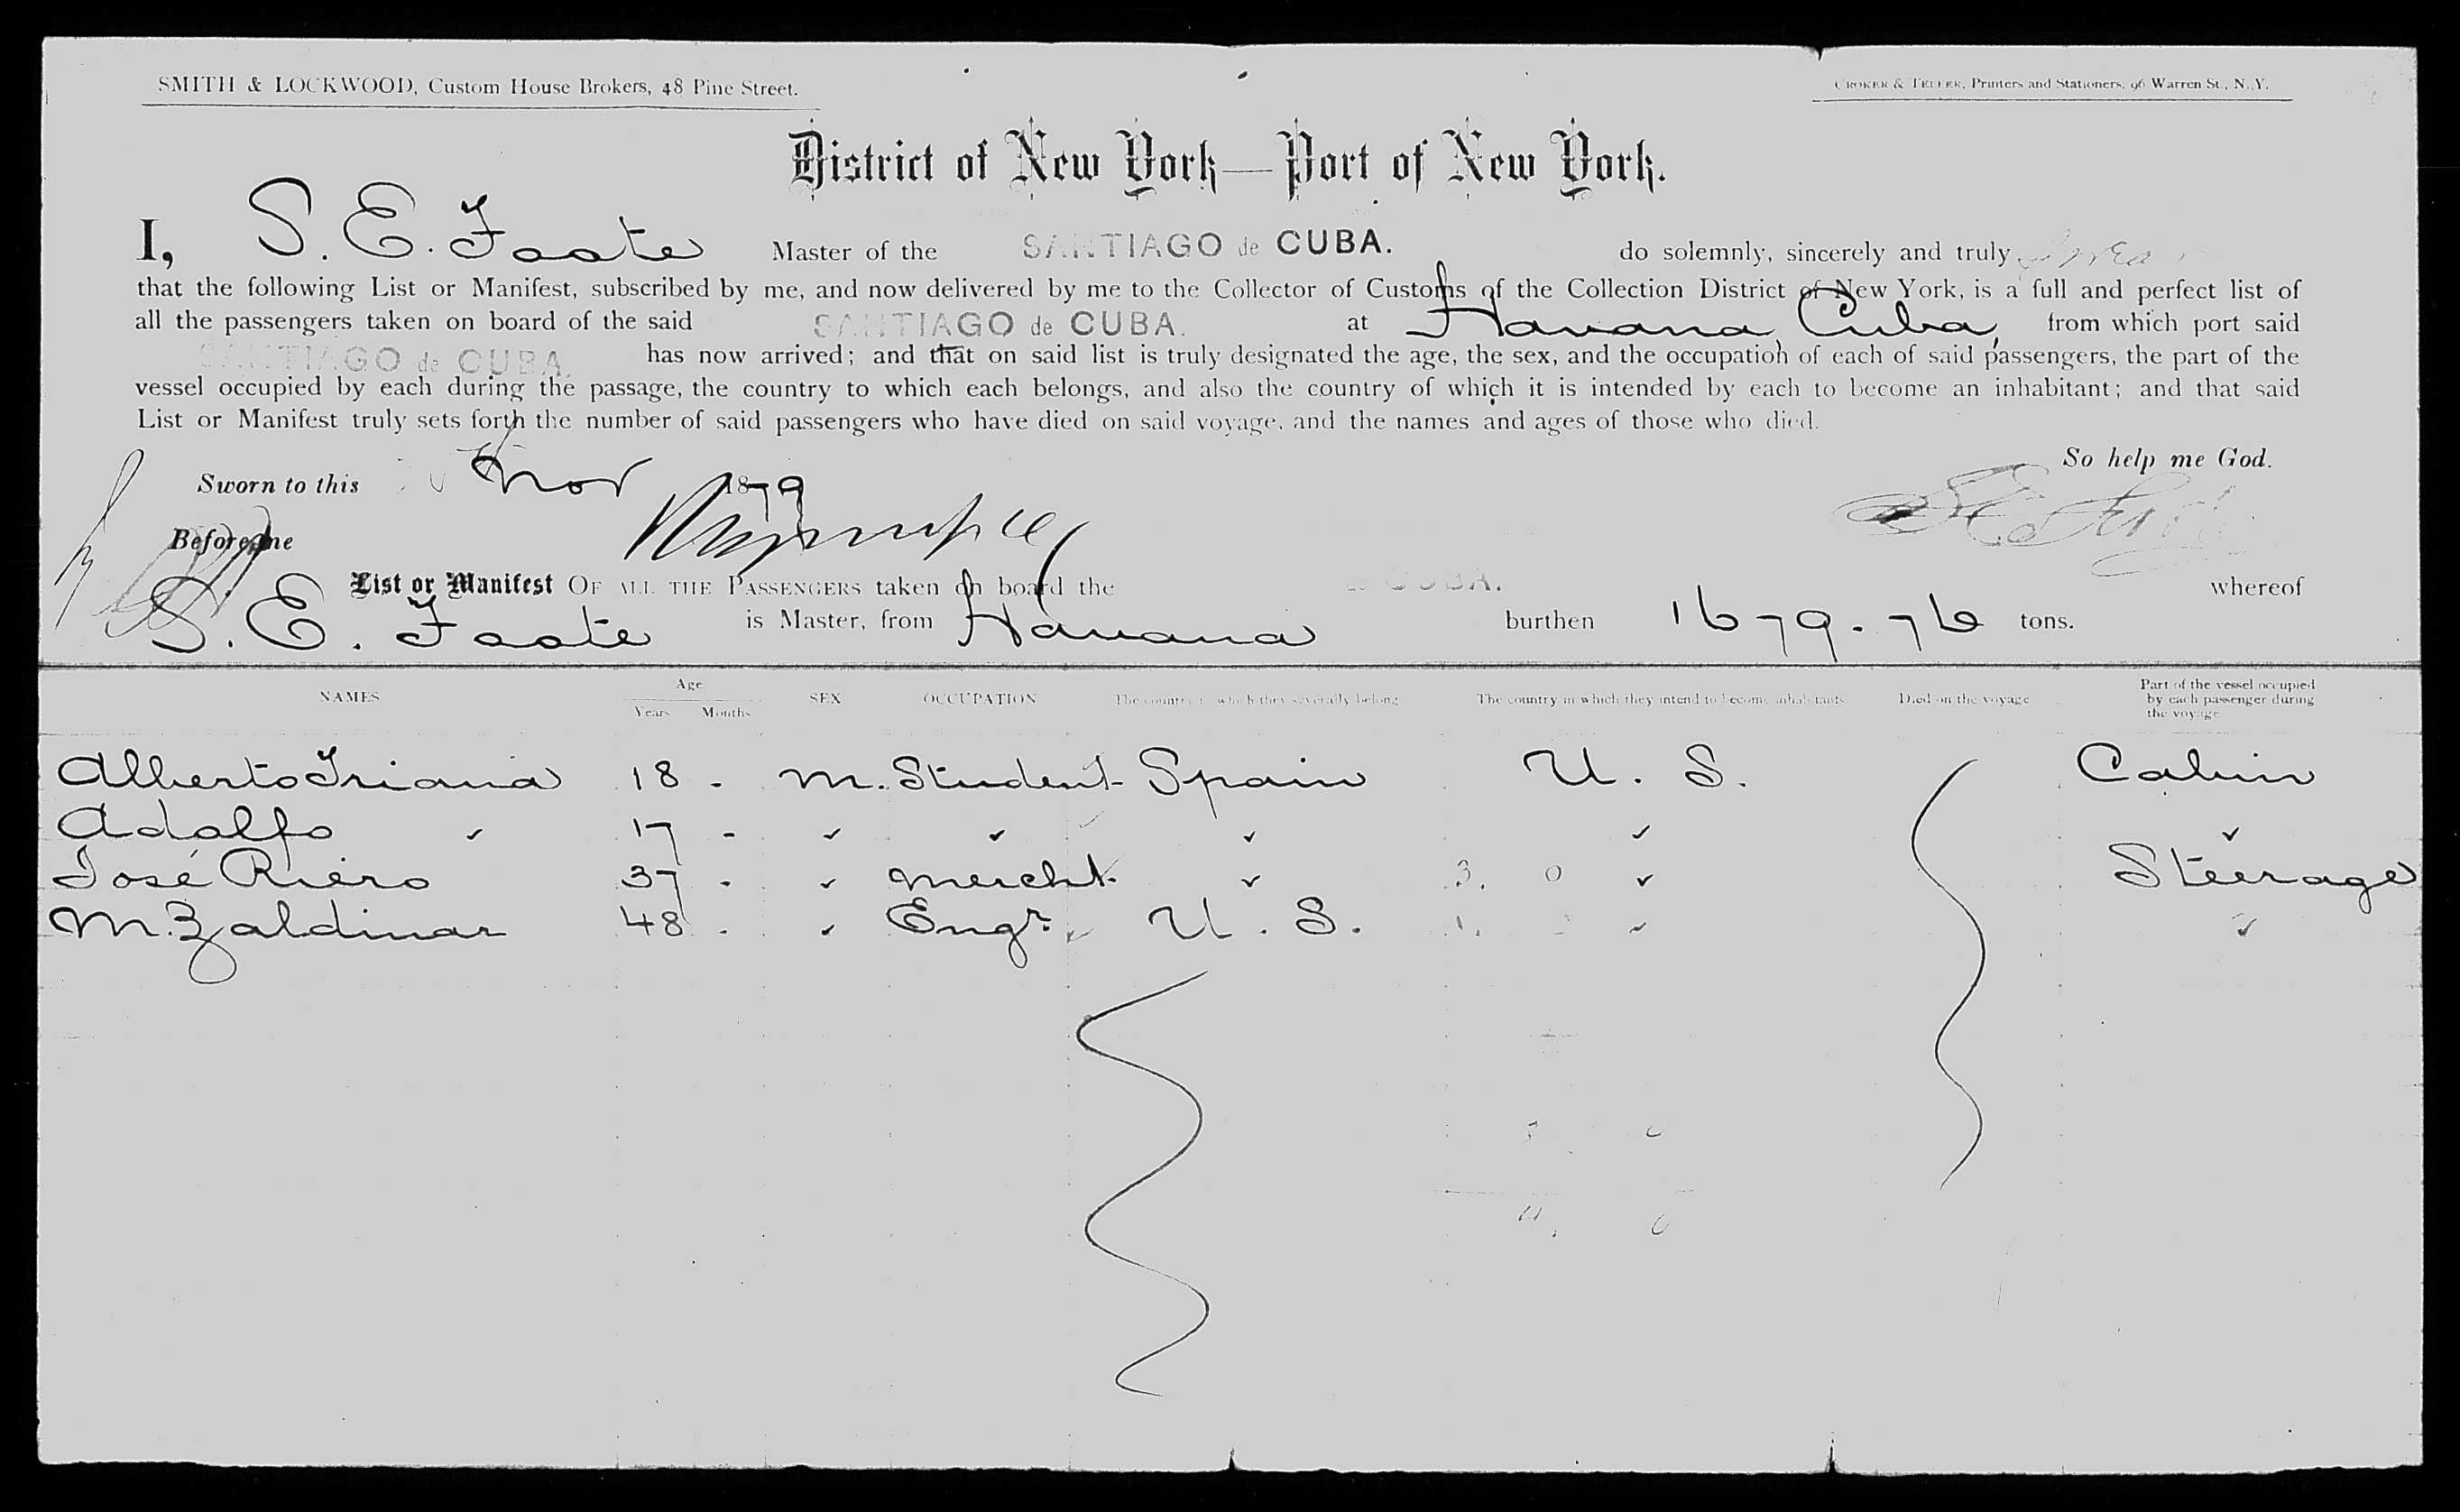 SMITH & LOCKWOOD, Custom House Brokers, 48 Pine Street.
CROKER & TELFER, Printers and Stationers, 96 Warren St., N.Y.
District of New York—Port of New York.
I, S. E. Foote Master of the SANTIAGO de CUBA. do solemnly, sincerely and truly swear
that the following List or Manifest, subscribed by me, and now delivered by me to the Collector of Customs of the Collection District of New York, is a full and perfect list of
all the passengers taken on board of the said SANTIAGO de CUBA. at Havana, Cuba, from which port said
SANTIAGO de CUBA. has now arrived; and that on said list is truly designated the age, the sex, and the occupation of each of said passengers, the part of the
vessel occupied by each during the passage, the country to which each belongs, and also the country of which it is intended by each to become an inhabitant; and that said
List or Manifest truly sets forth the number of said passengers who have died on said voyage, and the names and ages of those who died.
So help me God.
Sworn to this Nov 1879
Before me
List or Manifest OF ALL THE PASSENGERS taken on board the CUBA. whereof
S. E. Foote is Master, from Havana burthen 1679.76 tons.
NAMES Age SEX OCCUPATION The country to which they severally belong The country in which they intend to become inhabitants Died on the voyage Part of the vessel occupied by each passenger during the voyage
Years Months
Alberto Triana 18 - M. Student Spain U. S. Cabin
Adolfo " 17 - " " " " "
José Riero 37 - " Mercht. " 3. 0 " Steerage
M. Zaldivar 48 - " Engr. U. S. 1. " "